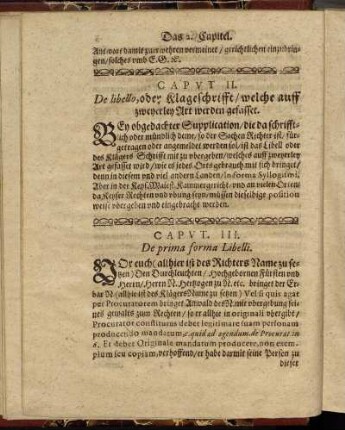 Das 2. Capitel.
Antwort damit zuerwehren vermeinet / gerichtlichen einzubringen
gen / solches vmb E.G. ꝛc.
CAPVT II.
De libello, oder Klageschrifft / welche auff
zweyerley Art werden gefasset.
BEy obgedachter Supplication / die da schrifft-
lich oder mündlich deme / so der Sachen Rechter ist / für-
getragen oder angemeldet werden sol / ist das Libell oder
des Klägers Schrifft mit zu vbergeben / welches auff zweyerley
Art gefasset wird / wie es jedes Orts gebrauch mit sich bringet /
denn in diesem vnd viel andern Landen / in forma Syllogismi,
Aber in der Keys. Maiest. Kammergericht / vnd an vielen Orten /
da Keyser Rechten vnd vbung seyn / müssen dieselbige position
weiß vbergeben vnd eingebracht werden.
CAPVT. III.
De prima forma Libelli.
VOr euch (allhier ist des Richters Name zu se-
tzen) Den Durchleuchten / Hochgebornen Fürsten vnd
Herrn / Herrn N. Hertzogen zu N. etc. bringet der Er-
bar N (allhie ist des Klägers Name zu setzen) Vel si quis agat
per Procuratorem bringet Anwald der N. mit vbergebung sei-
nes gewalts zum Rechten / so er allhie in originali vbergibt /
Procurator constitutus debet legitimare suam personam
producendo mandatum
Et debet Originale mandatum producere, non exem-
plum seu copiam, verhoffend / er habe darmit seine Person zu
dieser